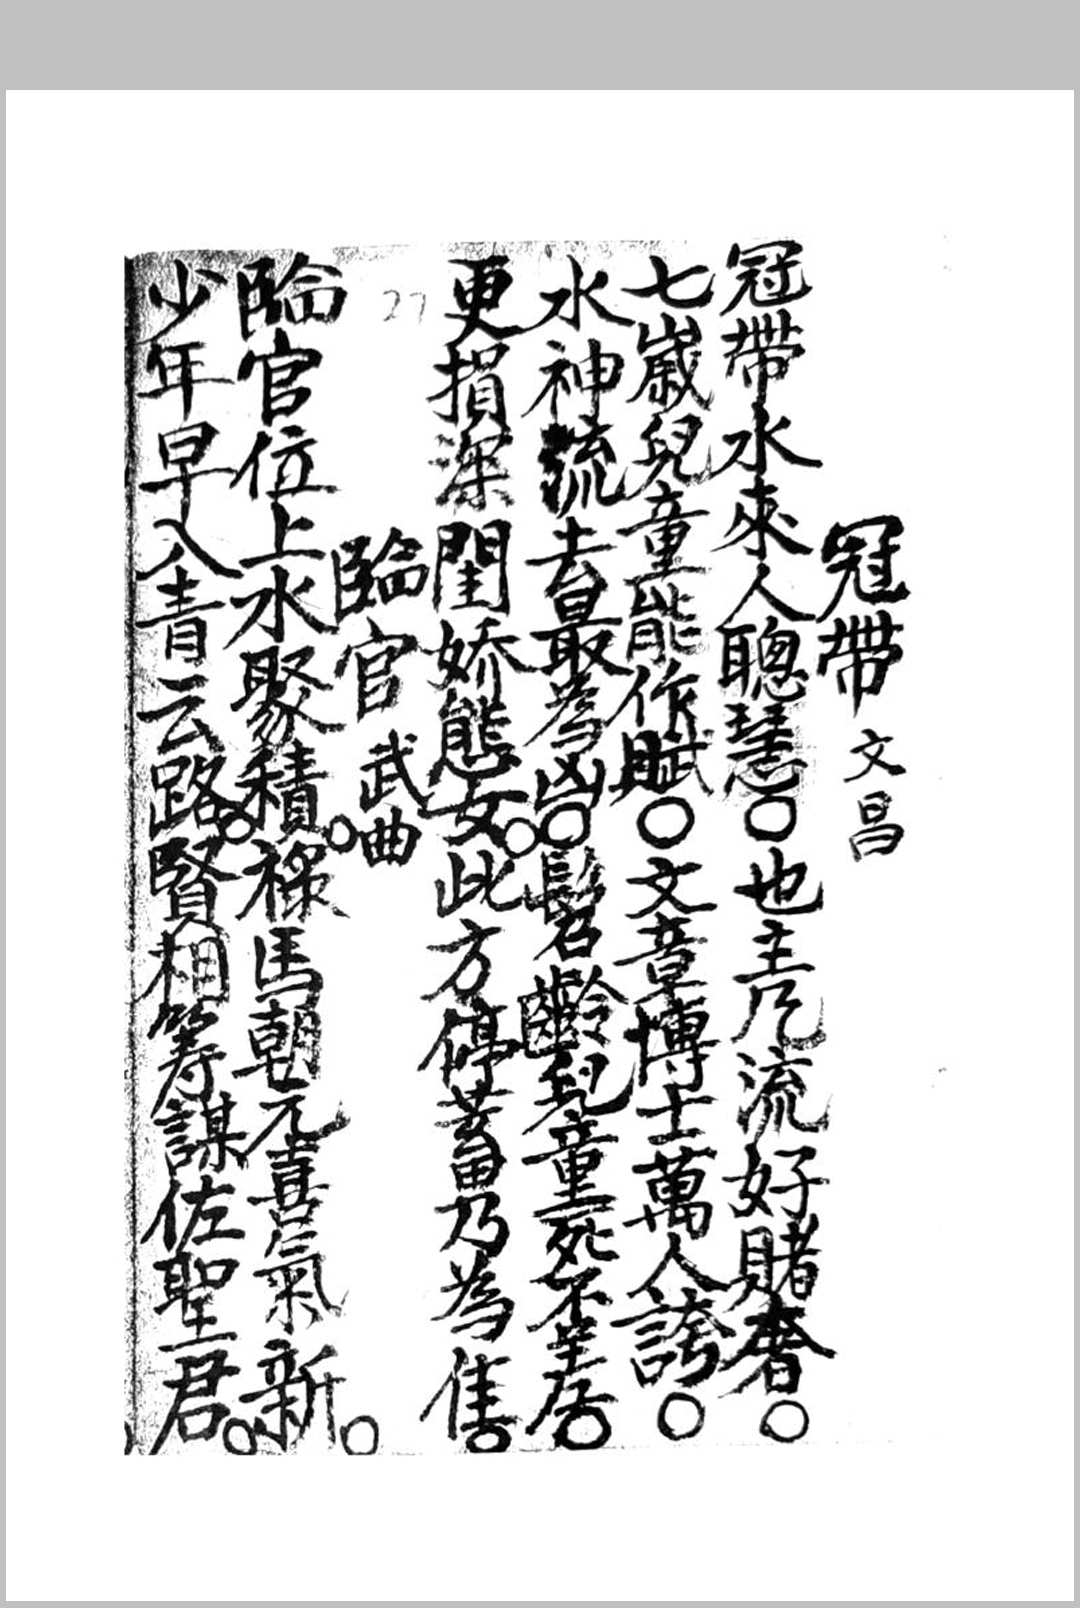 冠帶 文昌
冠帶水來人聰慧○也主風流好賭奢○
七歲兒童能作賦○文章博士萬人誇○
水神流去最為凶○髫齡兒童死不堪居○
更損深閨嬌態女○此方停蓄乃為佳○
27
臨官 武曲
臨官位上水聚積○祿馬朝元喜氣新○
少年早入青云路○賢相筹謀佐聖君○